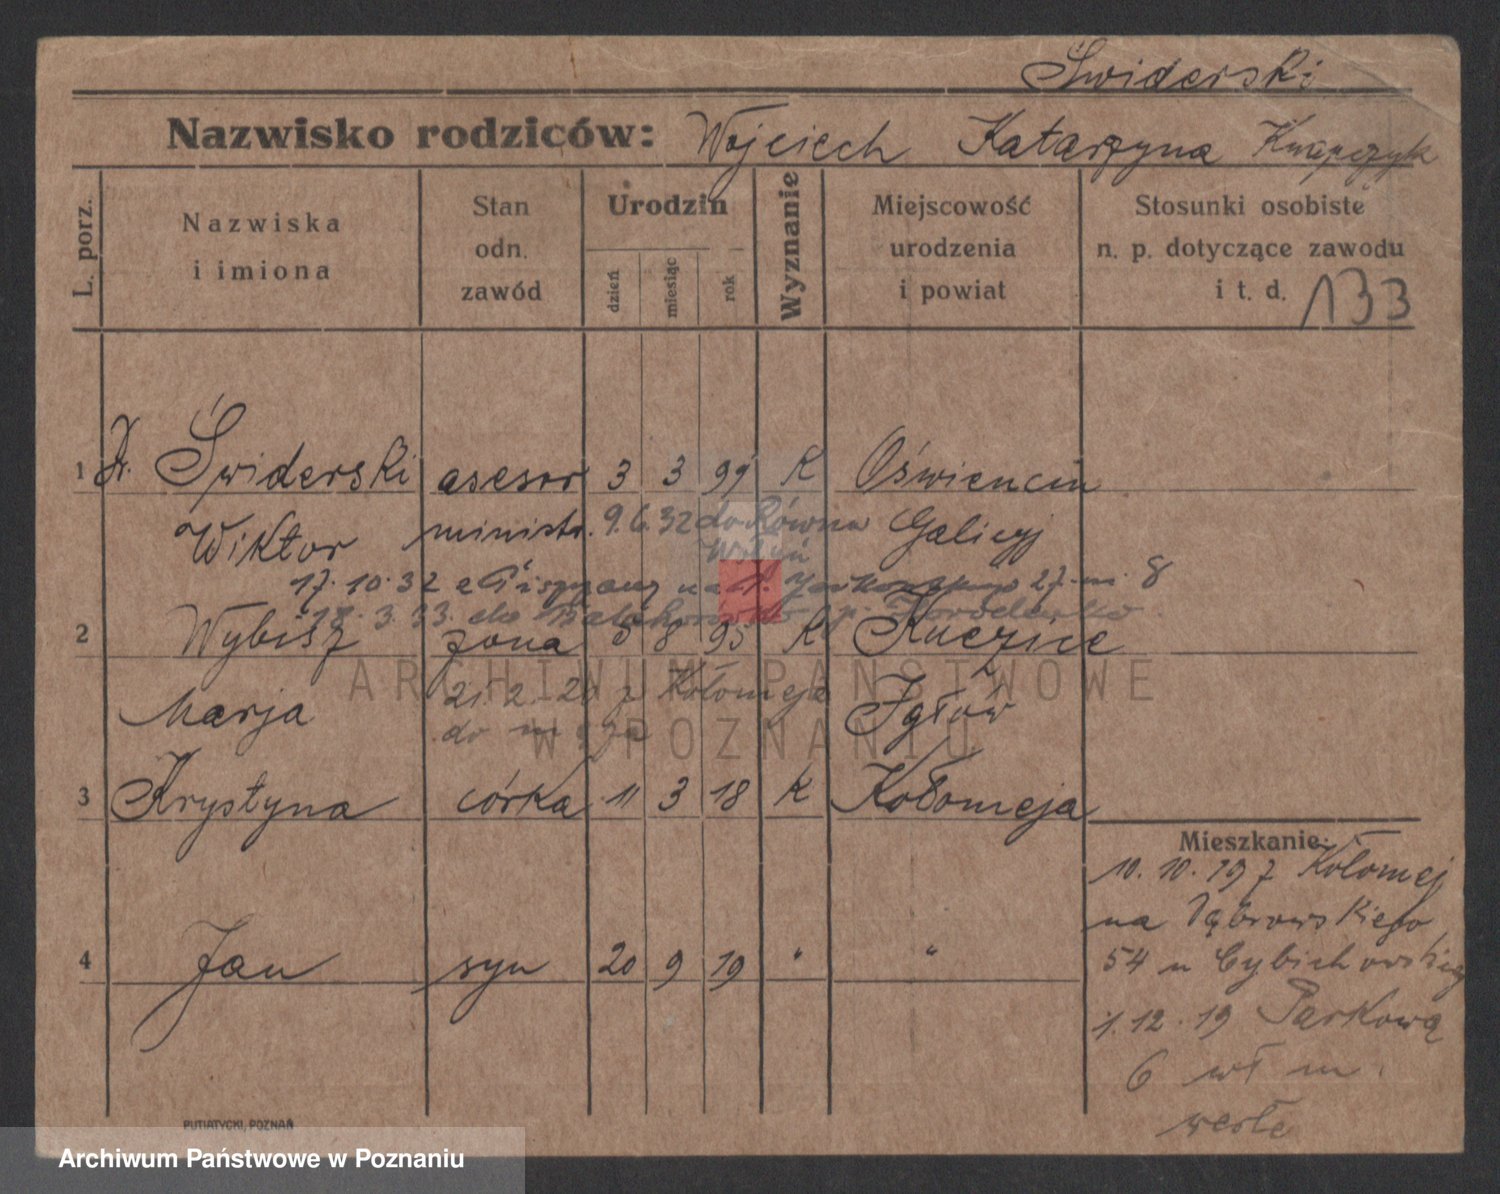 Świderski
Nazwisko rodziców: Wojciech Katarzyna Knapczyk
L. porz.
Nazwiska
i imiona
Stan
odn.
zawód
Urodzin
dzień
miesiąc
rok
Wyznanie
Miejscowość
urodzenia
i powiat
Stosunki osobiste
n. p. dotyczące zawodu
i t. d. 133
1 Dr. Świderski asesor 3 3 99 K Oświencim
Wiktor ministr. 9.6.32 do Równa Galicyj
Wołyń
17.10.32 z na 27 m. 8
18.3.33. do
2 Wybisz żona 5 8 95 K
Marja 21.2.20 z Kołomeja
do
3 Krystyna córka 11 3 18 K Kołomeja
Mieszkanie:
10.10.19 z Kołomej
na Dąbrowskiego
4 Jan syn 20 9 19 " "
54 u Cybichowskiego
1.12.19 Parkową
6 wł m.
PUTIATYCKI, POZNAŃ
ARCHIWUM PAŃSTWOWE
W POZNANIU
Archiwum Państwowe w Poznaniu